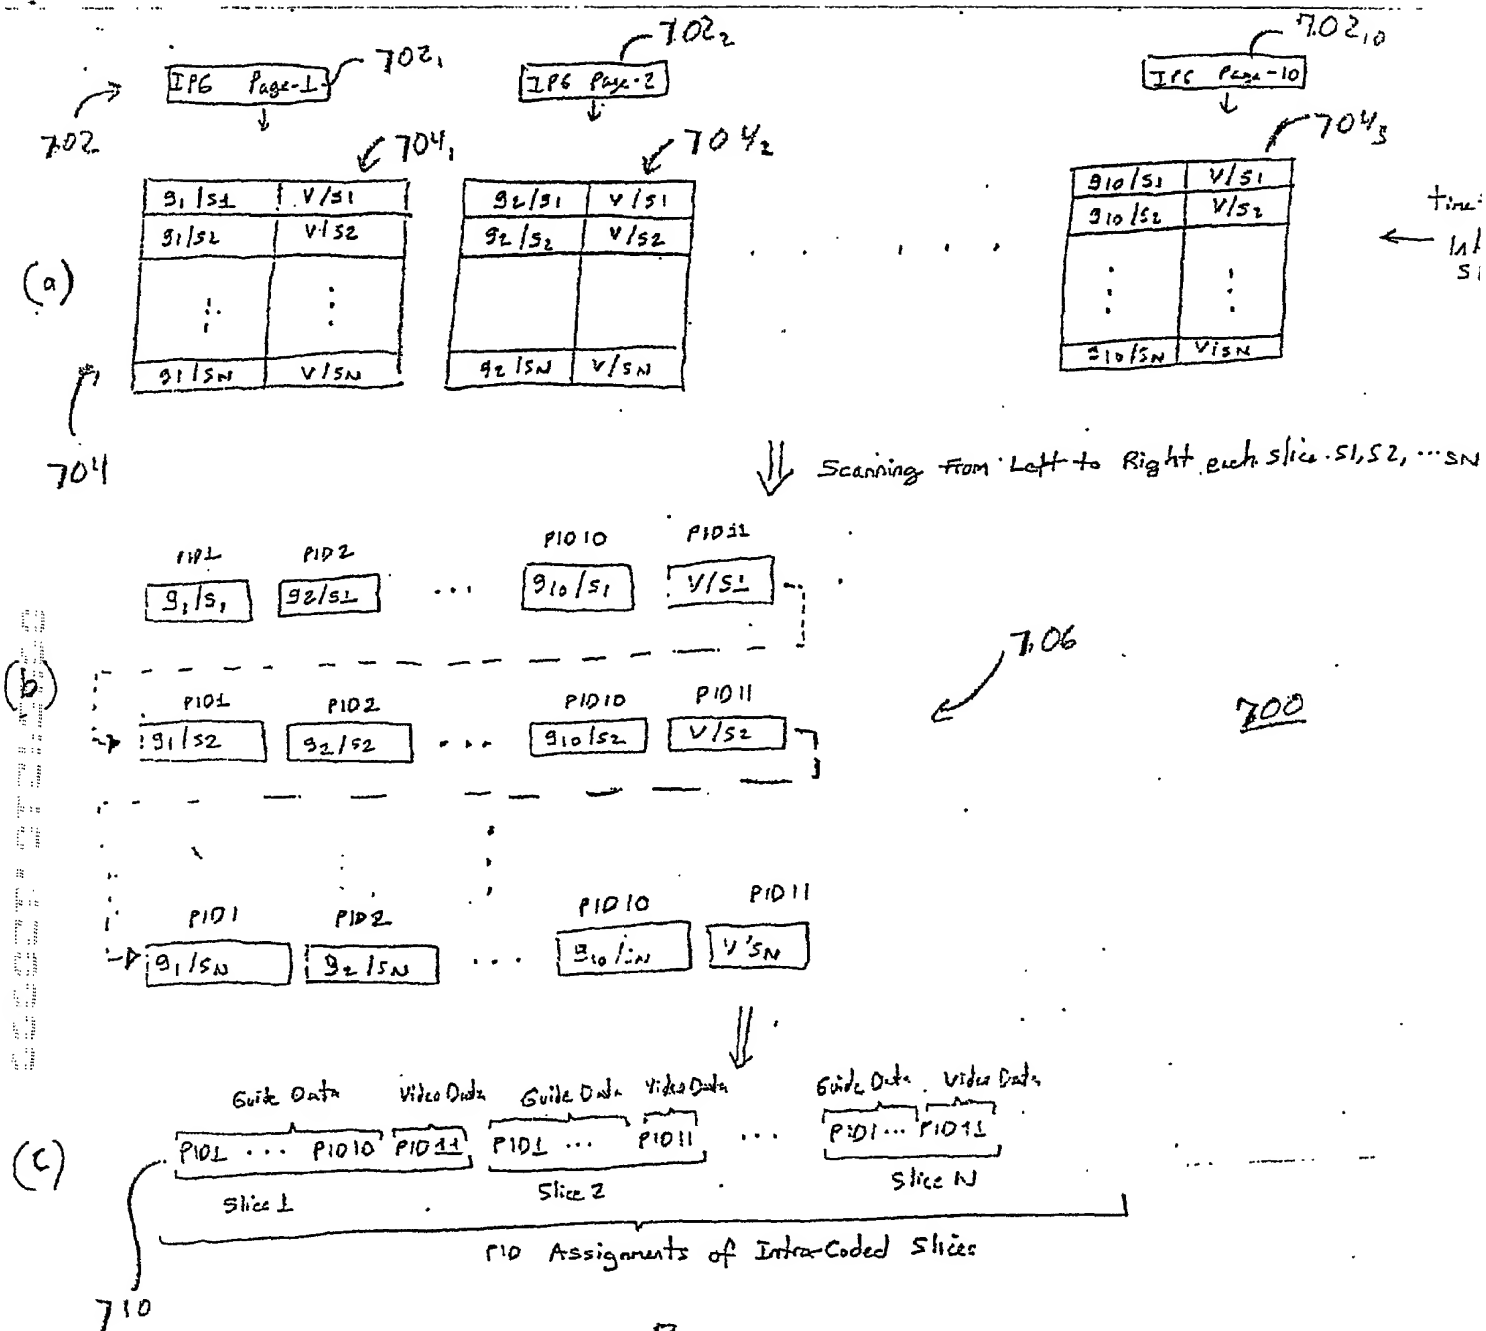 702₁ 702₂ 702₁₀
IPG Page-1 IPG Page-2 IPG Page-10
702
704₁ 704₂ 704₃
g₁/s1 V/s1 g₂/s1 V/s1 g10/s1 V/s1
g1/s2 V/s2 g2/s2 V/s2 g10/s2 V/s2
time-
(a)
g1/sN V/sN g2/sN V/sN g10/sN V/sN
704
Scanning From Left to Right each slice S1, S2, ... SN
PID1 PID2 PID10 PID11
g₁/s₁ g2/s1 ... g10/s1 V/S1
706
(b)
PID1 PID2 PID10 PID11
700
g1/s2 g2/s2 ... g10/s2 V/s2
PID1 PID2 PID10 PID11
g1/sN g2/sN ... g10/sN V/sN
Guide Data Video Data Guide Data Video Data Guide Data Video Data
(c)
PID1 ... PID10 PID11 PID1 ... PID11 ... PID1 ... PID11
Slice 1 Slice 2 Slice N
PID Assignments of Intra-Coded Slices
710